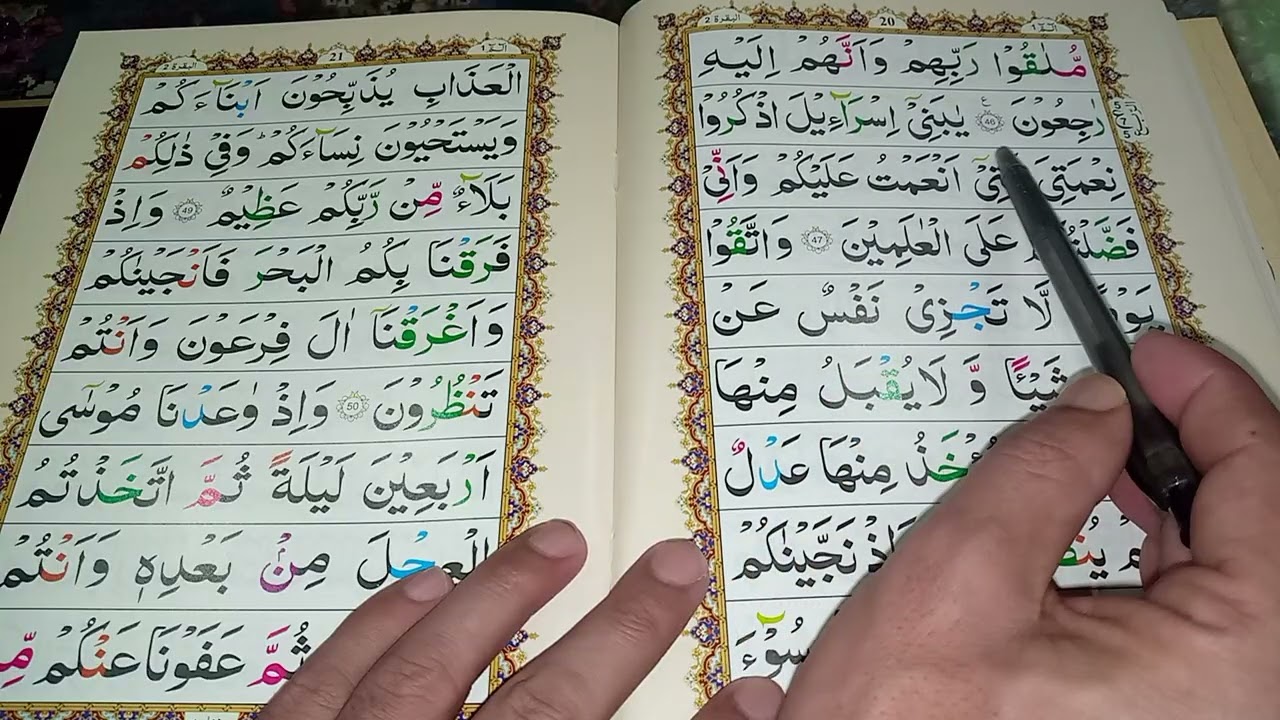 البقرة ٢ 20 الٓمّٓ ١
مُّلٰقُوْا رَبِّهِمْ وَاَنَّهُمْ اِلَيْهِ
رٰجِعُوْنَ 46 ع يٰبَنِيْٓ اِسْرَآءِيْلَ اذْكُرُوْا
نِعْمَتِيَ اَنْعَمْتُ عَلَيْكُمْ وَاَنِّيْ
عَلَى الْعٰلَمِيْنَ 47 وَاتَّقُوْا
لَّا تَجْزِيْ نَفْسٌ عَنْ
شَيْـًٔا وَّ لَا يُقْبَلُ مِنْهَا
مِنْهَا عَدْلٌ
نَجَّيْنٰكُمْ
سُوْٓءَ
البقرة ٢ 21 الٓمّٓ ١
الْعَذَابِ يُذَبِّحُوْنَ اَبْنَآءَكُمْ
وَيَسْتَحْيُوْنَ نِسَآءَكُمْ ؕ وَفِيْ ذٰلِكُمْ
بَلَآءٌ مِّنْ رَّبِّكُمْ عَظِيْمٌ 49 وَاِذْ
فَرَقْنَا بِكُمُ الْبَحْرَ فَاَنْجَيْنٰكُمْ
وَاَغْرَقْنَآ اٰلَ فِرْعَوْنَ وَاَنْتُمْ
تَنْظُرُوْنَ 50 وَاِذْ وٰعَدْنَا مُوْسٰٓى
اَرْبَعِيْنَ لَيْلَةً ثُمَّ اتَّخَذْتُمُ
الْعِجْلَ مِنْۢ بَعْدِهٖ وَاَنْتُمْ
ثُمَّ عَفَوْنَا عَنْكُمْ مِّنْ